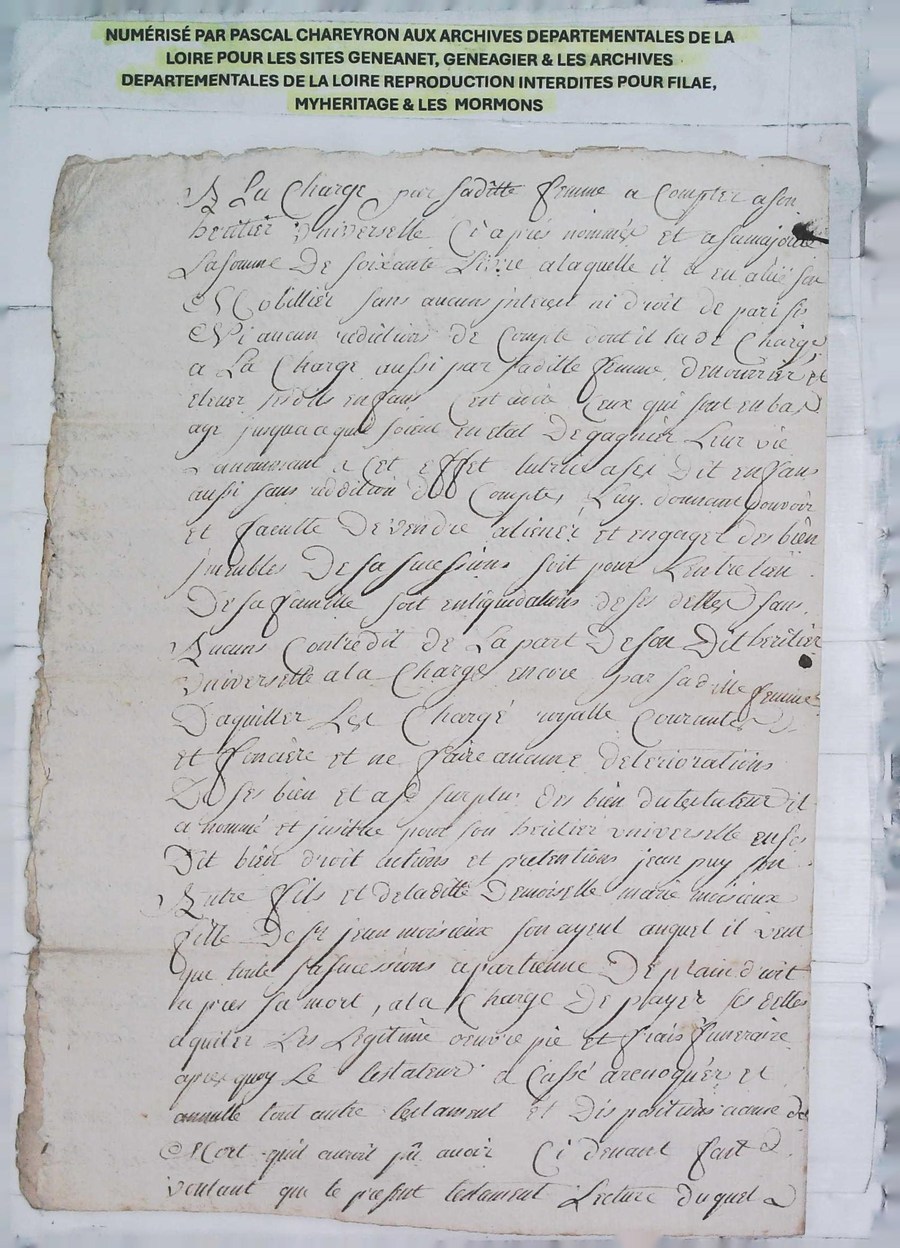 NUMÉRISÉ PAR PASCAL CHAREYRON AUX ARCHIVES DEPARTEMENTALES DE LA
LOIRE POUR LES SITES GENEANET, GENEAGIER & LES ARCHIVES
DEPARTEMENTALES DE LA LOIRE REPRODUCTION INTERDITES POUR FILAE,
MYHERITAGE & LES MORMONS
A La Charge par saditte femme a Compter a son
heritier Universelle Ci apres nommé et a sa majorite
La somme De soixante Livre a laquelle il a son
Mobillier sans aucuns interest ni droit de
Ni aucun redditions de Compte dont il la de Charge
a La Charge aussi par saditte femme denourrir et
elever sesdits enfans Cest adire Ceux qui sont en bas
age jusqua a quil soient en etat De gagnier Leur vie
La nommant a Cet effet tutrice a ses Dit enfans
aussi sans reddition de Comptes Luy donnant pouvoir
et faculte De vendre aliener et engager des bien
jmeubles De sa successions soit pour Lentretien
De sa famille soit enliquidations de ses dettes sans
Aucuns Contredit de La part De son Dit heritier
Universelle a la Charge encore par saditte femme
Daquitter Les Chargé royalle Courante
et fonciere et ne faire aucune deteriorations
De ses bien et a Se surplus des bien du testateur il
a nommé et jnstitue pour son heritier universelle en ses
Dit bien droit actions et pretentions jean puy son
Autre fils et deladitte Demoiselle marie moisieux
fille De feu jean moisieux son ayeul auquel il veut
que toute sa sucessions apartienne De plain droit
apres sa mort, a la Charge De payer ses dettes
aquiter Les Legitime oeuvre pie et frais funeraire
apres quoy Le testateur a Cassé arevoquér et
annulle tout autre testament et Dispositions acause de
Mort quil auroit pû avoir Ci devant fait
voulant que le present testament Lecture duquel